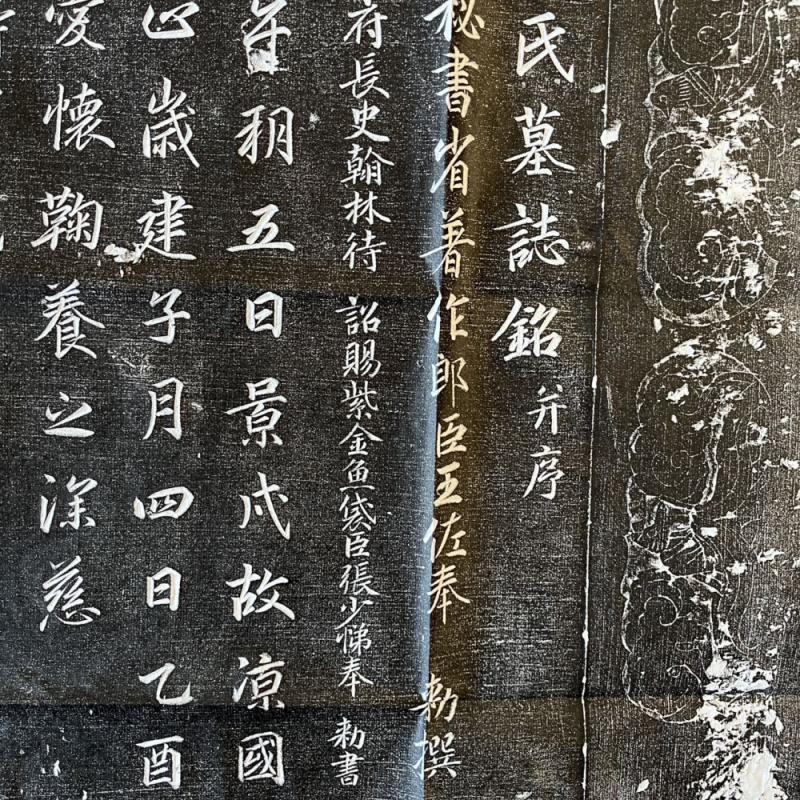 氏墓誌銘并序
秘書省著作郎臣王佐奉 勅撰
府長史翰林待 詔賜紫金魚袋臣張少悌奉 勅書
年月五日景戌故涼國
歲建子月四日乙酉
愛懷鞠養之深慈